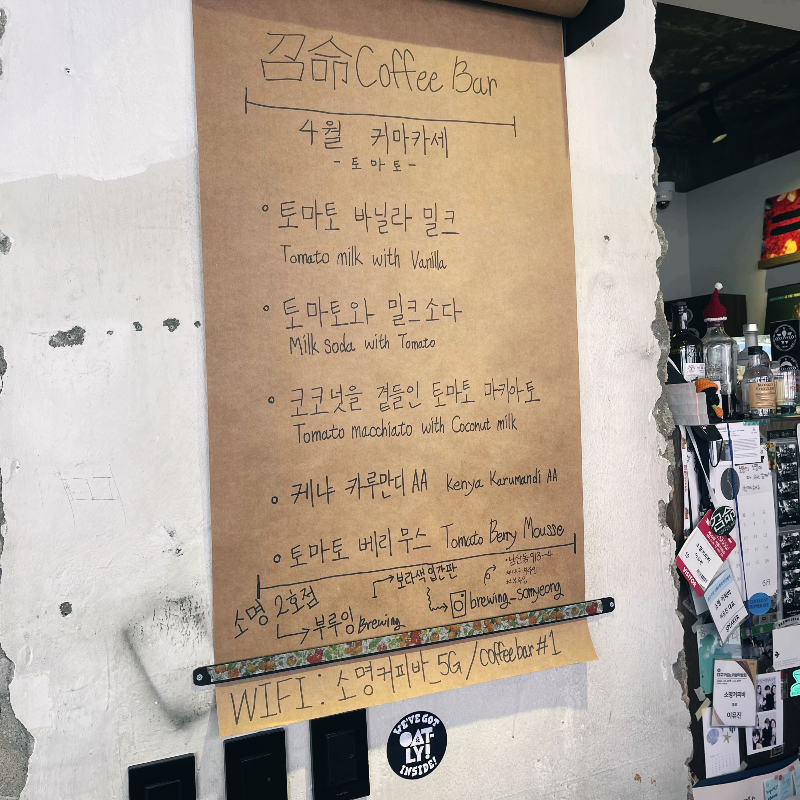 召命 Coffee Bar
4월 커마카세
- 토마토 -
토마토 바닐라 밀크
Tomato milk with Vanilla
토마토와 밀크소다
Milk soda with Tomato
코코넛을 곁들인 토마토 마키아토
Tomato macchiato with Coconut milk
케냐 카루만디 AA Kenya Karumandi AA
토마토 베리 무스 Tomato Berry Mousse
소명 2호점
보라색 입간판
부루잉 Brewing
brewing_somyeong
WIFI : 소명커피바_5G / coffeebar#1
WE'VE GOT
OAT-
LY!
INSIDE!
소명커피바
이유진